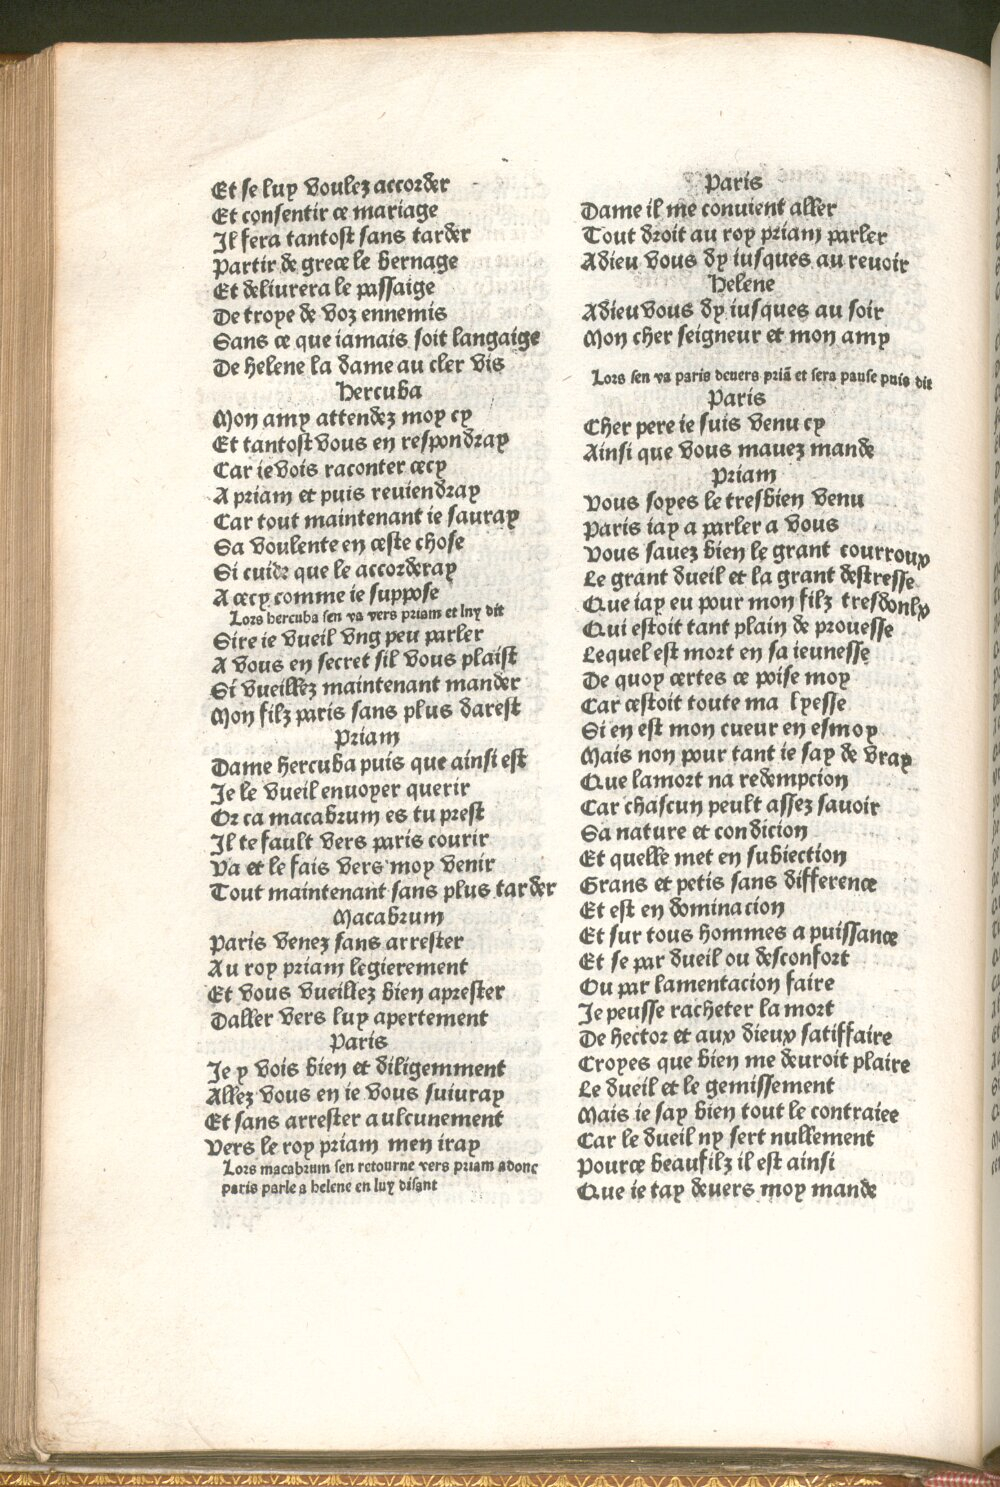 Et se luy voulez accorder
Et consentir ce mariage
Il fera tantost sans tarder
Partir de grece le bernage
Et delivrera le passaige
De troye de voz ennemis
Sans ce que iamais soit langaige
De helene la dame au cler vis
Hercuba
Mon amy attendez moy cy
Et tantost vous en respondray
Car ie vois raconter cecy
A priam et puis reviendray
Car tout maintenant ie sauray
Sa voulente en ceste chose
Si cuide que le accorderay
A cecy comme ie suppose
Lors hercuba sen va vers priam et luy dit
Sire ie vueil vng peu parler
A vous en secret sil vous plaist
Si vueillez maintenant mander
Mon filz paris sans plus darest
Priam
Dame hercuba puis que ainsi est
Je le vueil enuoyer querir
Or ca macabrum es tu prest
Il te fault vers paris courir
Va et le fais vers moy venir
Tout maintenant sans plus tarder
Macabrum
Paris venez sans arrester
Au roy priam legierement
Et vous vueillez bien aprester
Daller vers luy apertement
Paris
Je y vois bien et diligemment
Allez vous en ie vous suiuray
Et sans arrester aulcunement
Vers le roy priam men iray
Lors macabrum sen retourne vers priam adonc
paris parle a helene en luy disant
Paris
Dame il me conuient aller
Tout droit au roy priam parler
Adieu vous dy iusques au reuoir
Helene
Adieu vous dy iusques au soir
Mon cher seigneur et mon amy
Lors sen va paris deuers priã et sera pause puis dit
Paris
Cher pere ie suis venu cy
Ainsi que vous mauez mande
Priam
Vous soyes le tresbien venu
Paris iay a parler a vous
Vous sauez bien le grant courroux
Le grant dueil et la grant destresse
Que iay eu pour mon filz tresdoulx
Qui estoit tant plain de prouesse
Lequel est mort en sa ieunesse
De quoy certes ce poise moy
Car cestoit toute ma lyesse
Si en est mon cueur en esmoy
Mais non pour tant ie say de vray
Que lamort na redempcion
Car chascun peult assez sauoir
Sa nature et condicion
Et quelle met en subiection
Grans et petis sans difference
Et est en dominacion
Et sur tous hommes a puissance
Et se par dueil ou desconfort
Ou par lamentacion faire
Je peusse racheter la mort
De hector et aux dieux satiffaire
Croyes que bien me deuroit plaire
Le dueil et le gemissement
Mais ie say bien tout le contraiee
Car le dueil ny sert nullement
Pource beaufilz il est ainsi
Que ie tay deuers moy mande